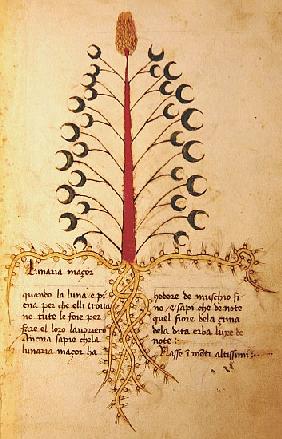 Lunaria maçor
quando la luna e pi
ena per che elli troua
no tute le foie per
fare el loro lauoriero
Ancora sapio chela
lunaria maçor ha
hodore de muschio fi
no e sapi che de note
quel fiore dela çima
dela dita erba luxe de
note :
Nasse i monti altissimi :